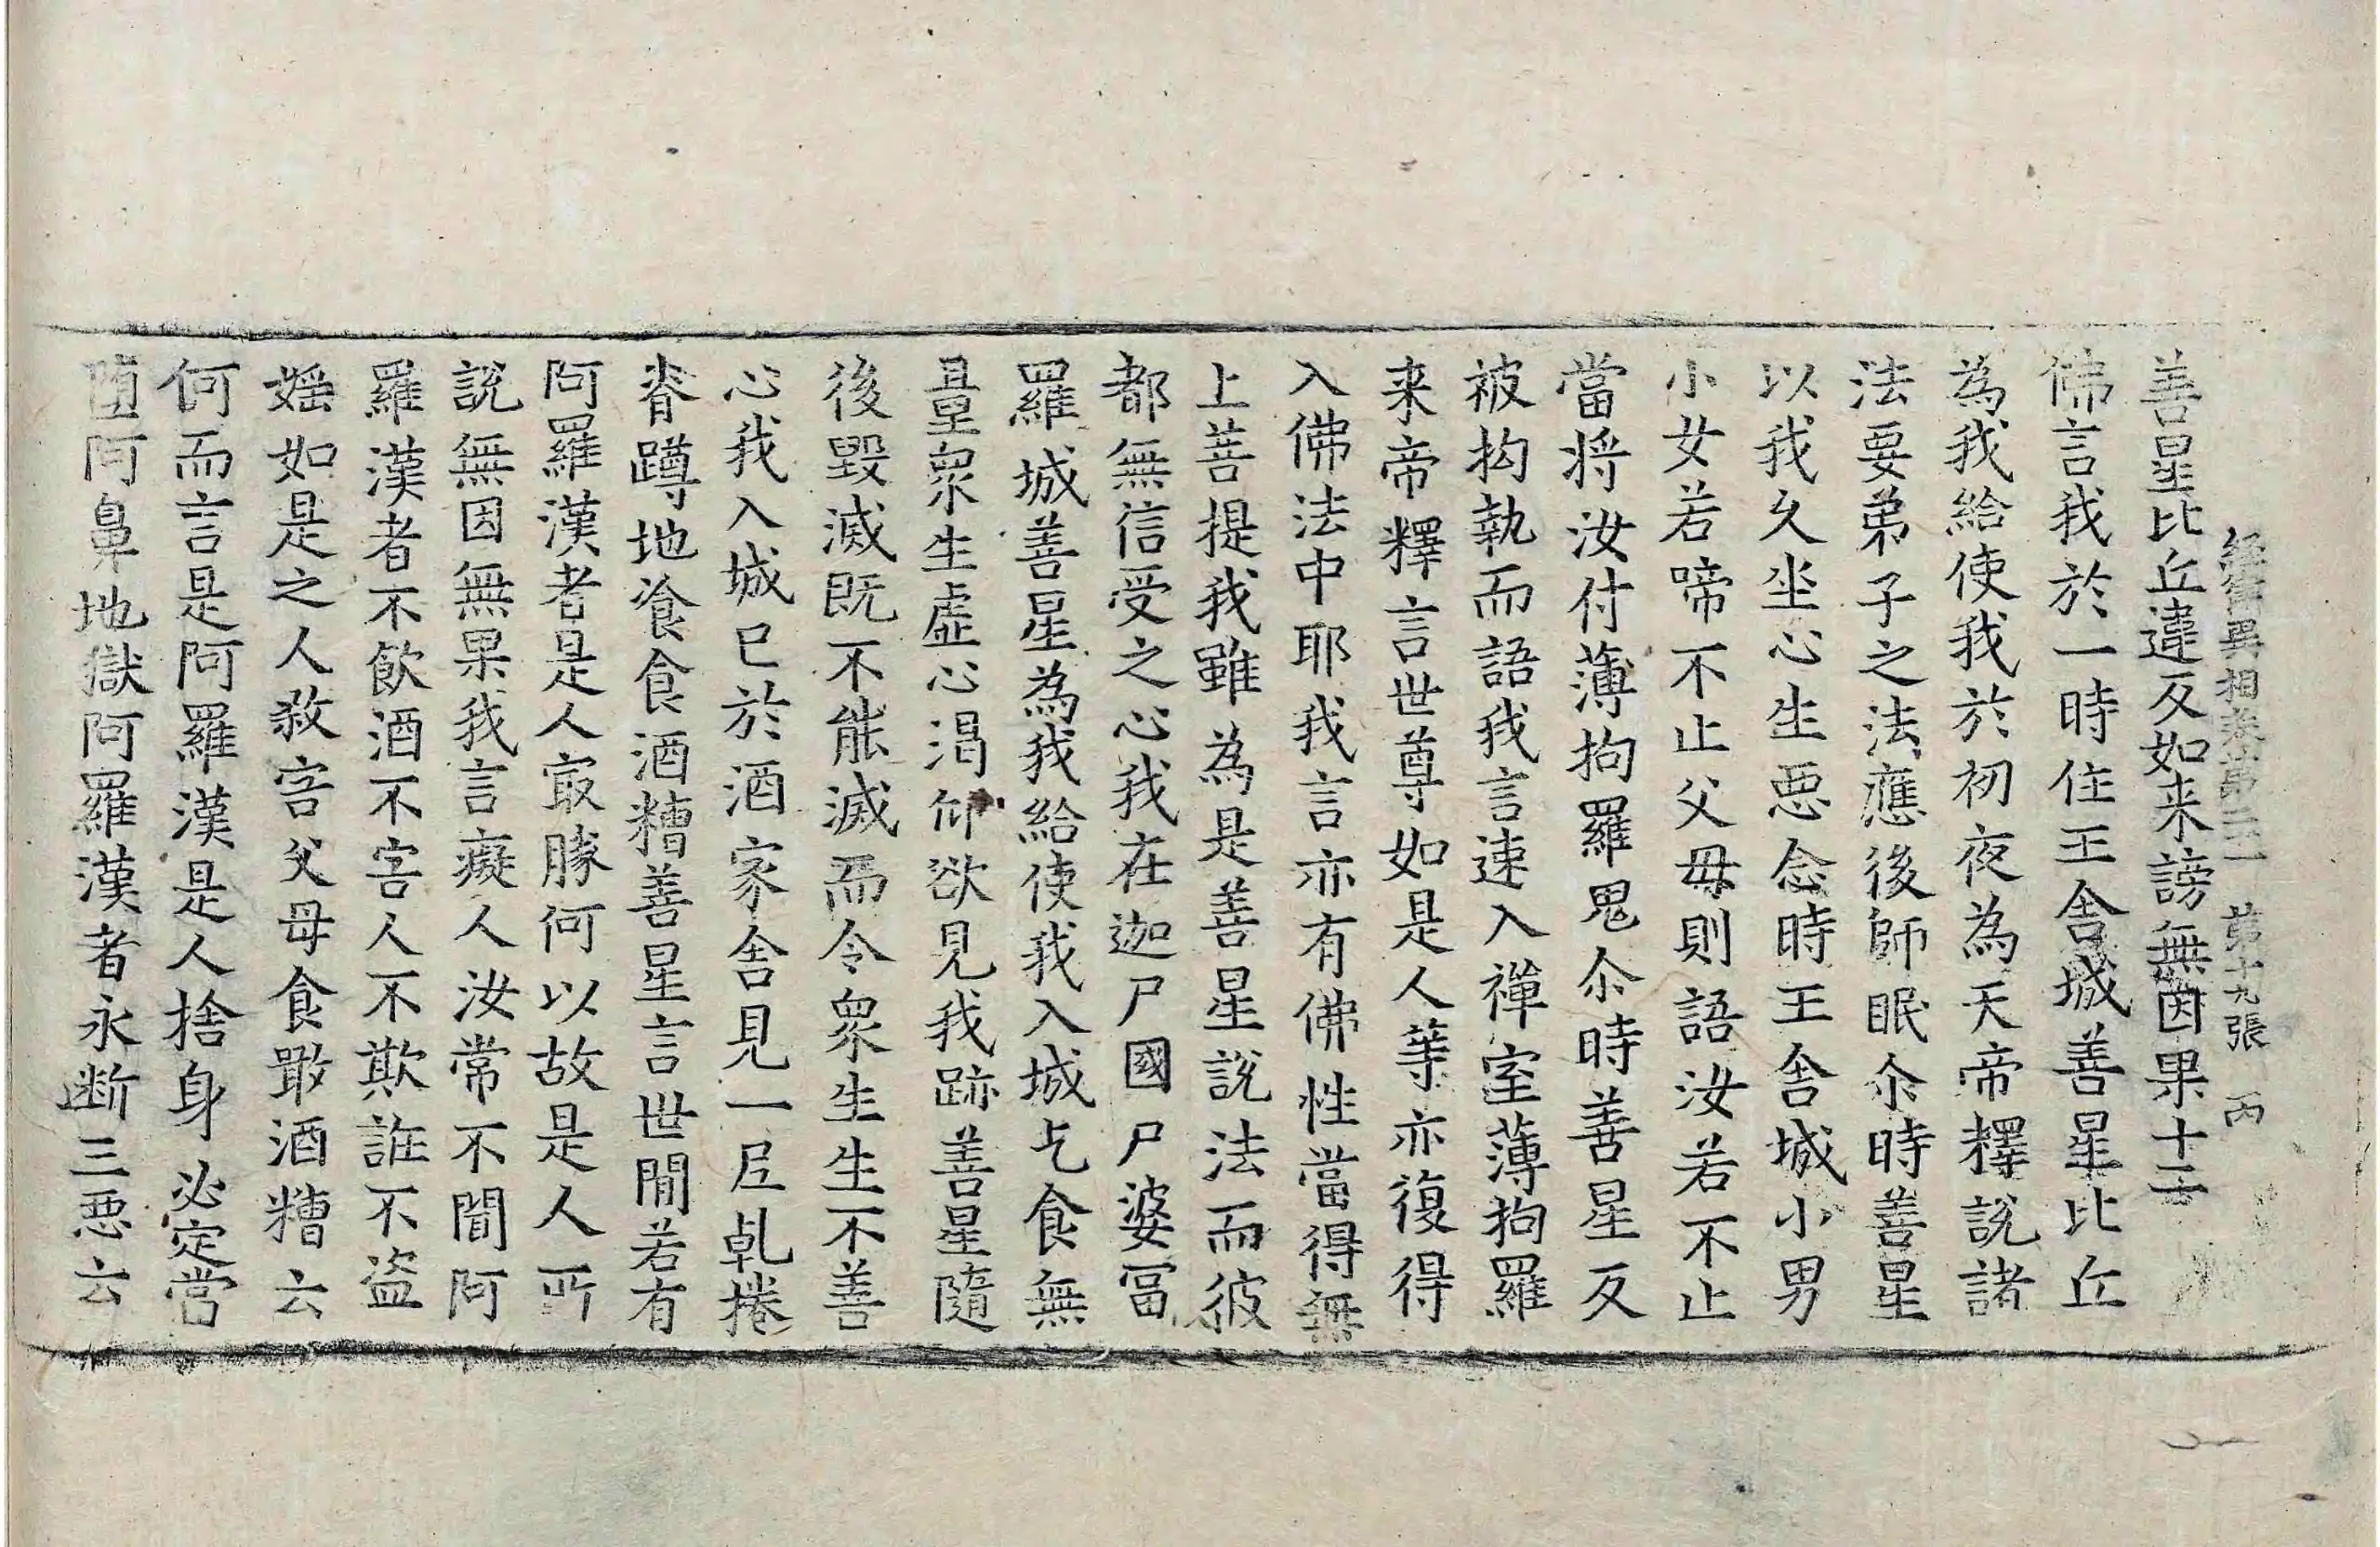 經律異相卷第二十一 第十九張 丙
善星比丘違反如来謗無因果十二
佛言我於一時住王舍城善星比丘
為我給使我於初夜為天帝釋說諸
法要弟子之法應後師眠尒時善星
以我久坐心生惡念時王舍城小男
小女若啼不止父母則語汝若不止
當將汝付薄拘羅鬼尒時善星反
被拘執而語我言速入禪室薄拘羅
来帝釋言世尊如是人等亦復得
入佛法中耶我言亦有佛性當得無
上菩提我雖為是善星說法而彼
都無信受之心我在迦尸國尸婆冨
羅城善星為我給使我入城乞食無
量衆生虛心渴仰欲見我跡善星隨
後毀滅既不能滅而令衆生生不善
心我入城已於酒家舍見一尼乹捲
脊蹲地飡食酒糟善星言世間若有
阿羅漢者是人㝡勝何以故是人所
說無因無果我言癡人汝常不聞阿
羅漢者不飲酒不害人不欺誑不盜
婬如是之人殺害父母食噉酒糟云
何而言是阿羅漢是人捨身必定當
堕阿鼻地獄阿羅漢者永断三惡云